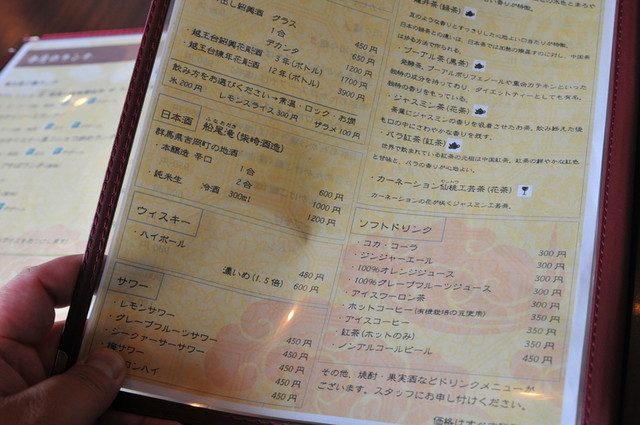 出し紹興酒 グラス 450円
1合 650円
デカンタ 1200円
・越王台紹興花彫酒 3年(ボトル) 1700円
・越王台陳年花彫酒 12年(ボトル) 3900円
飲み方をお選びください→常温・ロック・お燗
氷 200円 レモンスライス 300円 ザラメ 100円
日本酒 船尾滝(柴崎酒造)
ふなおだき
群馬県吉岡町の地酒
・本醸造 辛口 1合 600円
2合 1000円
・純米生 冷酒 300ml 1200円
ウイスキー
・ハイボール 480円
濃いめ(1.5倍) 600円
サワー
・レモンサワー 450円
・グレープフルーツサワー 450円
・シークァーサーサワー 450円
サワー 450円
コンハイ 450円
茶(緑茶)
・プーアル茶(黒茶)
・ジャスミン茶(花茶)
茶葉にジャスミンの香りを吸着させたお茶。飲み終えた後
も口の中にさわやかな香りを残す。
・バラ紅茶(紅茶)
世界で飲まれている紅茶の元祖は中国紅茶。紅茶の鮮やかな紅色
と甘味と、バラの香りが心地よい。
・カーネーション仙桃工芸茶(花茶)
カーネーションの花が咲くジャスミン工芸茶。
ソフトドリンク
・コカ・コーラ 300円
・ジンジャーエール 300円
・100%オレンジジュース 300円
・100%グレープフルーツジュース 300円
・アイスウーロン茶 300円
・ホットコーヒー(有機栽培の豆使用) 350円
・アイスコーヒー 350円
・紅茶(ホットのみ) 350円
・ノンアルコールビール 450円
その他、焼酎・果実酒などドリンクメニューが
ございます。スタッフにお申し付けください。
価格はすべて